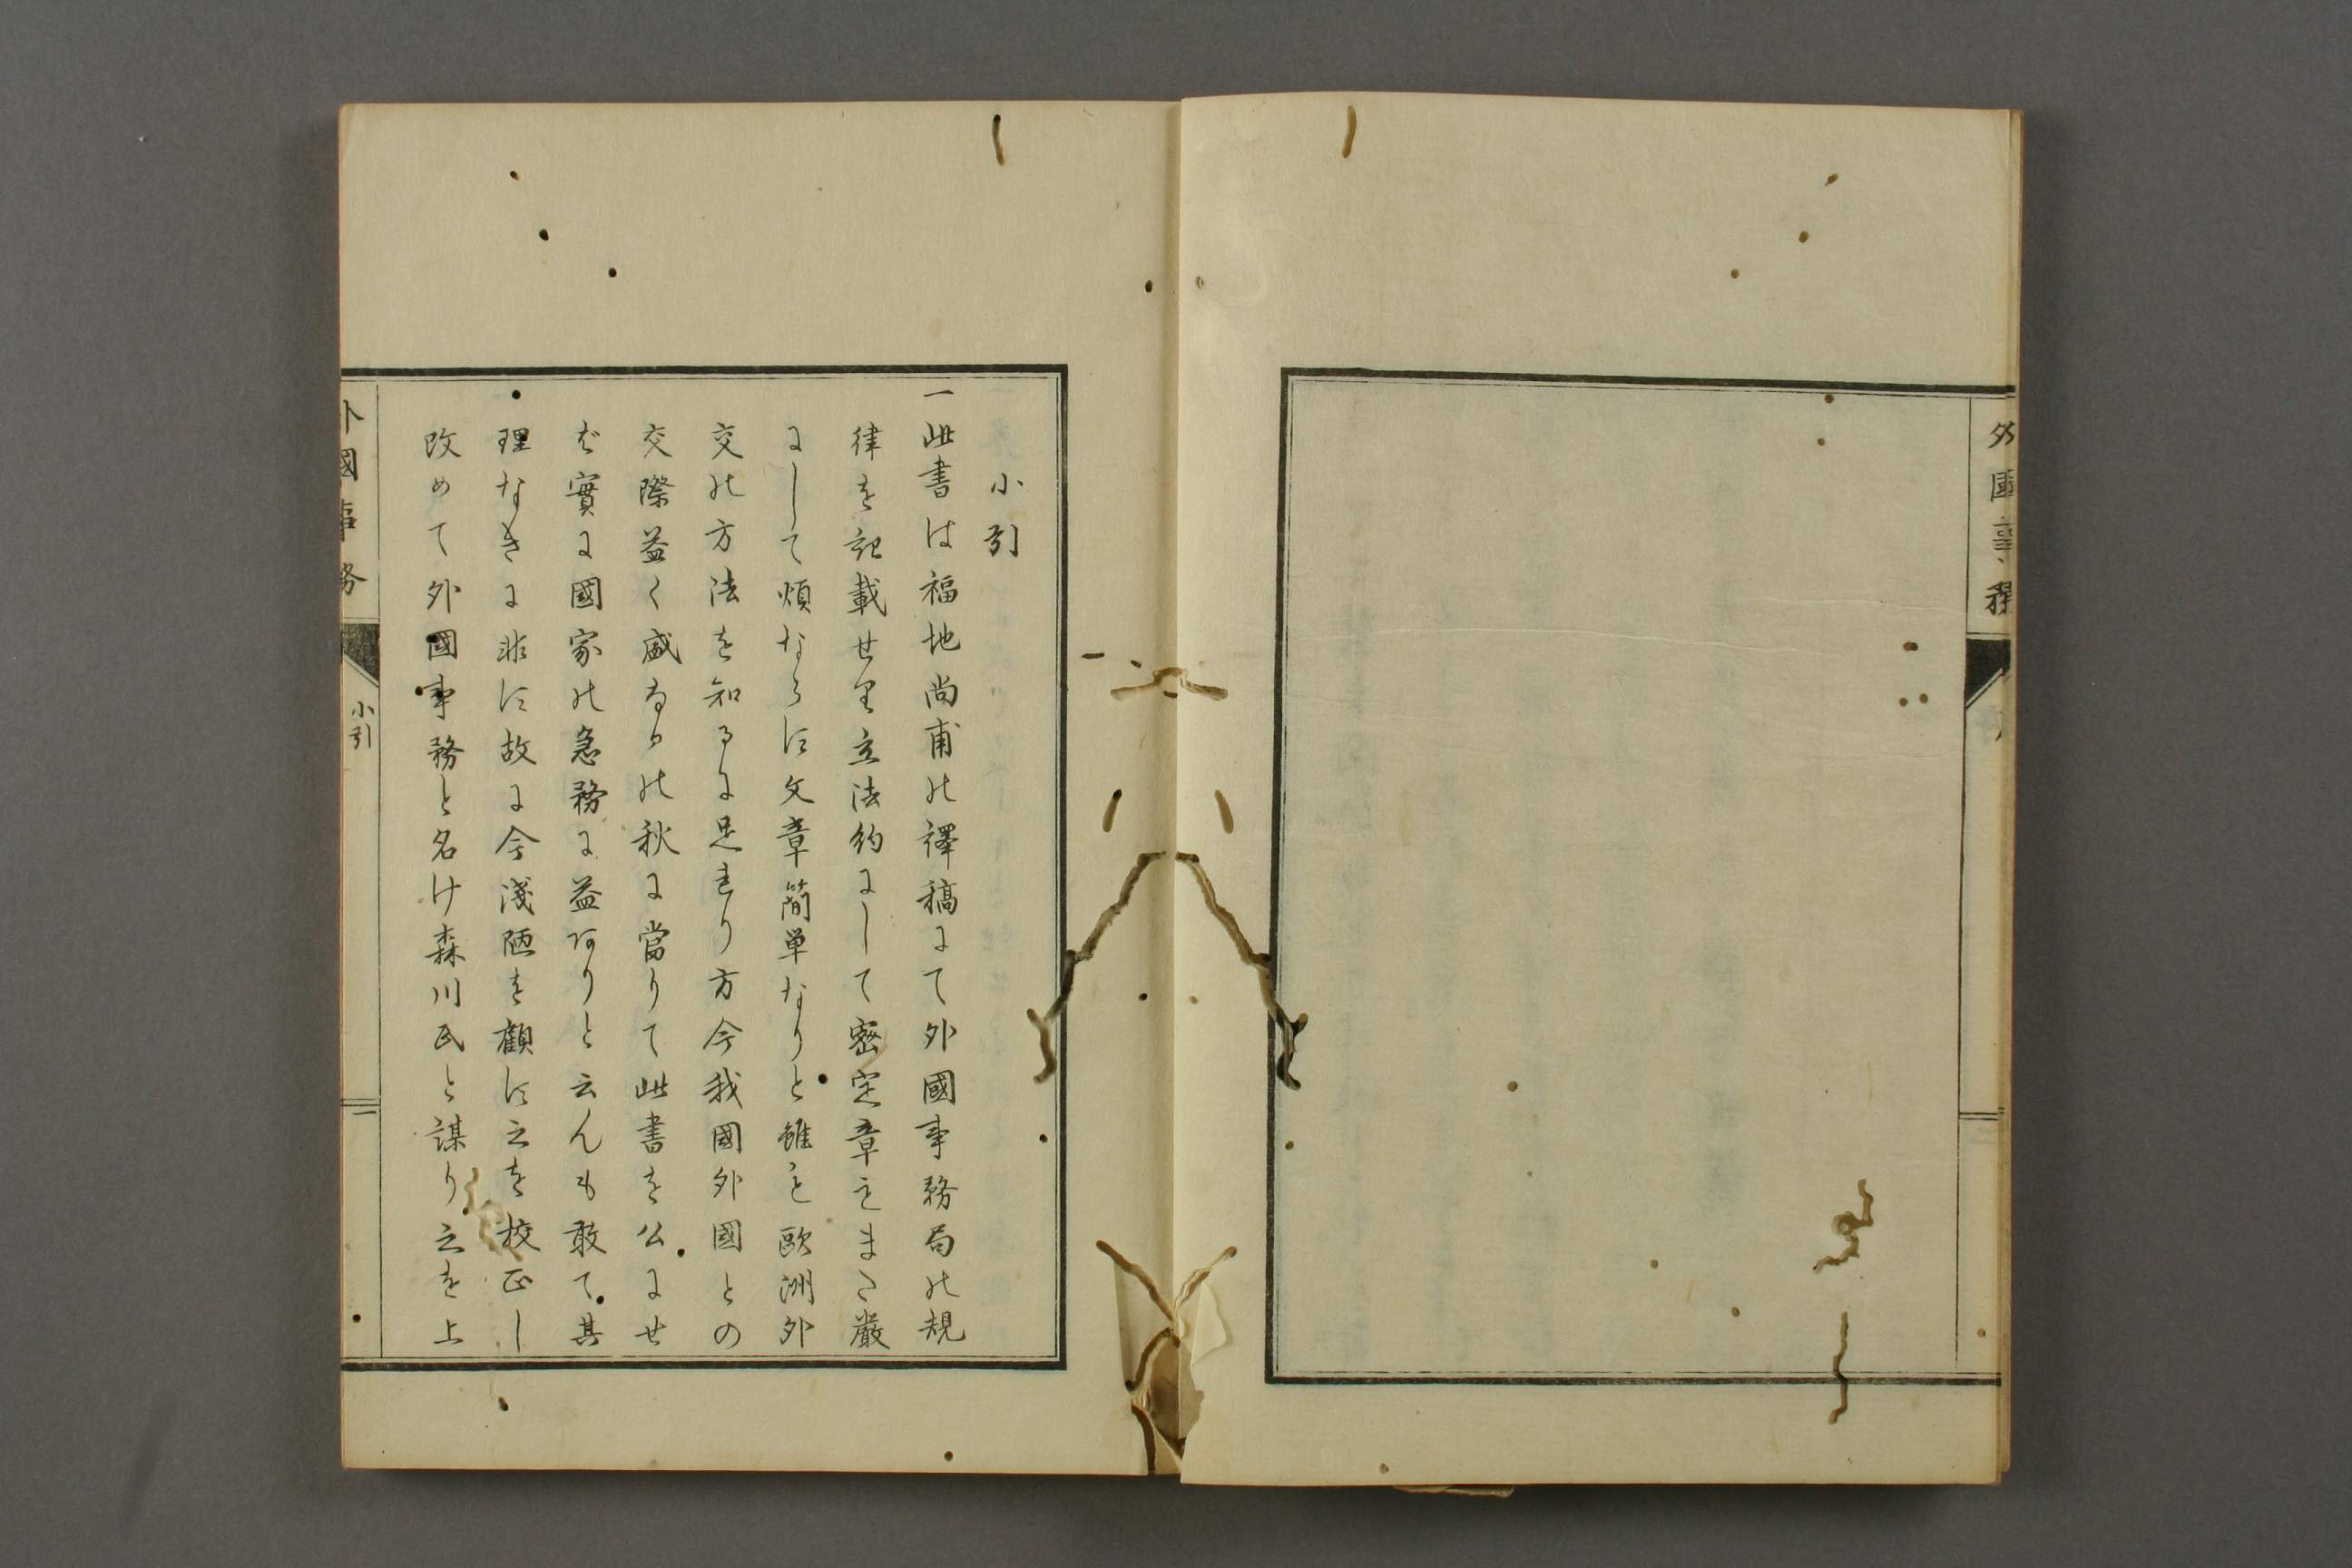 小引
一此書は福地尚甫の譯稿にて外國事務局の規
律を記載せり立法約にして密定章もまた嚴
にして煩ならに文章簡単なりと雖も歐洲外
交の方法を知るに足れり方今我國外國との
交際益く盛なるの秋に當りて此書を公にせ
ば實に國家の急務に益ありと云んも敢て其
理なきに非に故に今淺陋を顧に之を校正し
改めて外國事務と名け森川氏と謀り之を上
外國事務
小引
一
外國事務